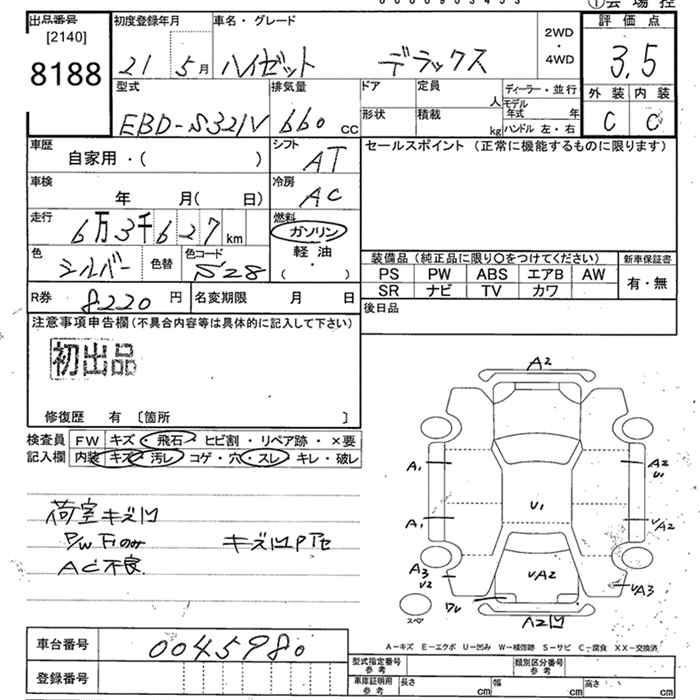 出品番号 初度登録年月 車名・グレード 評価点
[2140] 2WD
8188 21 5月 ハイゼット デラックス ・ 3,5
4WD
型式 排気量 ドア 定員 ディーラー・並行 外装 内装
人 モデル
EBD-S321V 660 cc 形状 積載 年式 年 C C
kg ハンドル 左・右
車歴 シフト セールスポイント(正常に機能するものに限ります)
自家用・( ) AT
車検 冷房
年 月( 日) AC
走行 燃料
6万3千627km ガソリン
色 色替 色コード 軽油 装備品(純正品に限り○をつけてください) 新車保証書
シルバー S28 ( ・ ) PS PW ABS エアB AW 有・無
SR ナビ TV カワ
R券 8220円 名変期限 月 日 後日品
注意事項申告欄(不具合内容等は具体的に記入して下さい)
初出品
修復歴 有 〔箇所 〕
検査員 FW キズ・飛石・ヒビ割・リペア跡・×要
記入欄 内装 キズ・汚レ・コゲ・穴・スレ・キレ・破レ
A2
A1 A2
U1
U1
荷室キズ凹
A1 UA2
キズ凹PTC
AC不良
A3 UA2 UA3
U2
スペア A2凹
A-キズ E-エクボ U-凹み W-補修跡 S-サビ C-腐食 XX-交換済
車台番号 0045980
型式指定番号 類別区分番号
参考 参考
登録番号 車庫証明用 長さ 幅 高さ
参考 cm cm cm